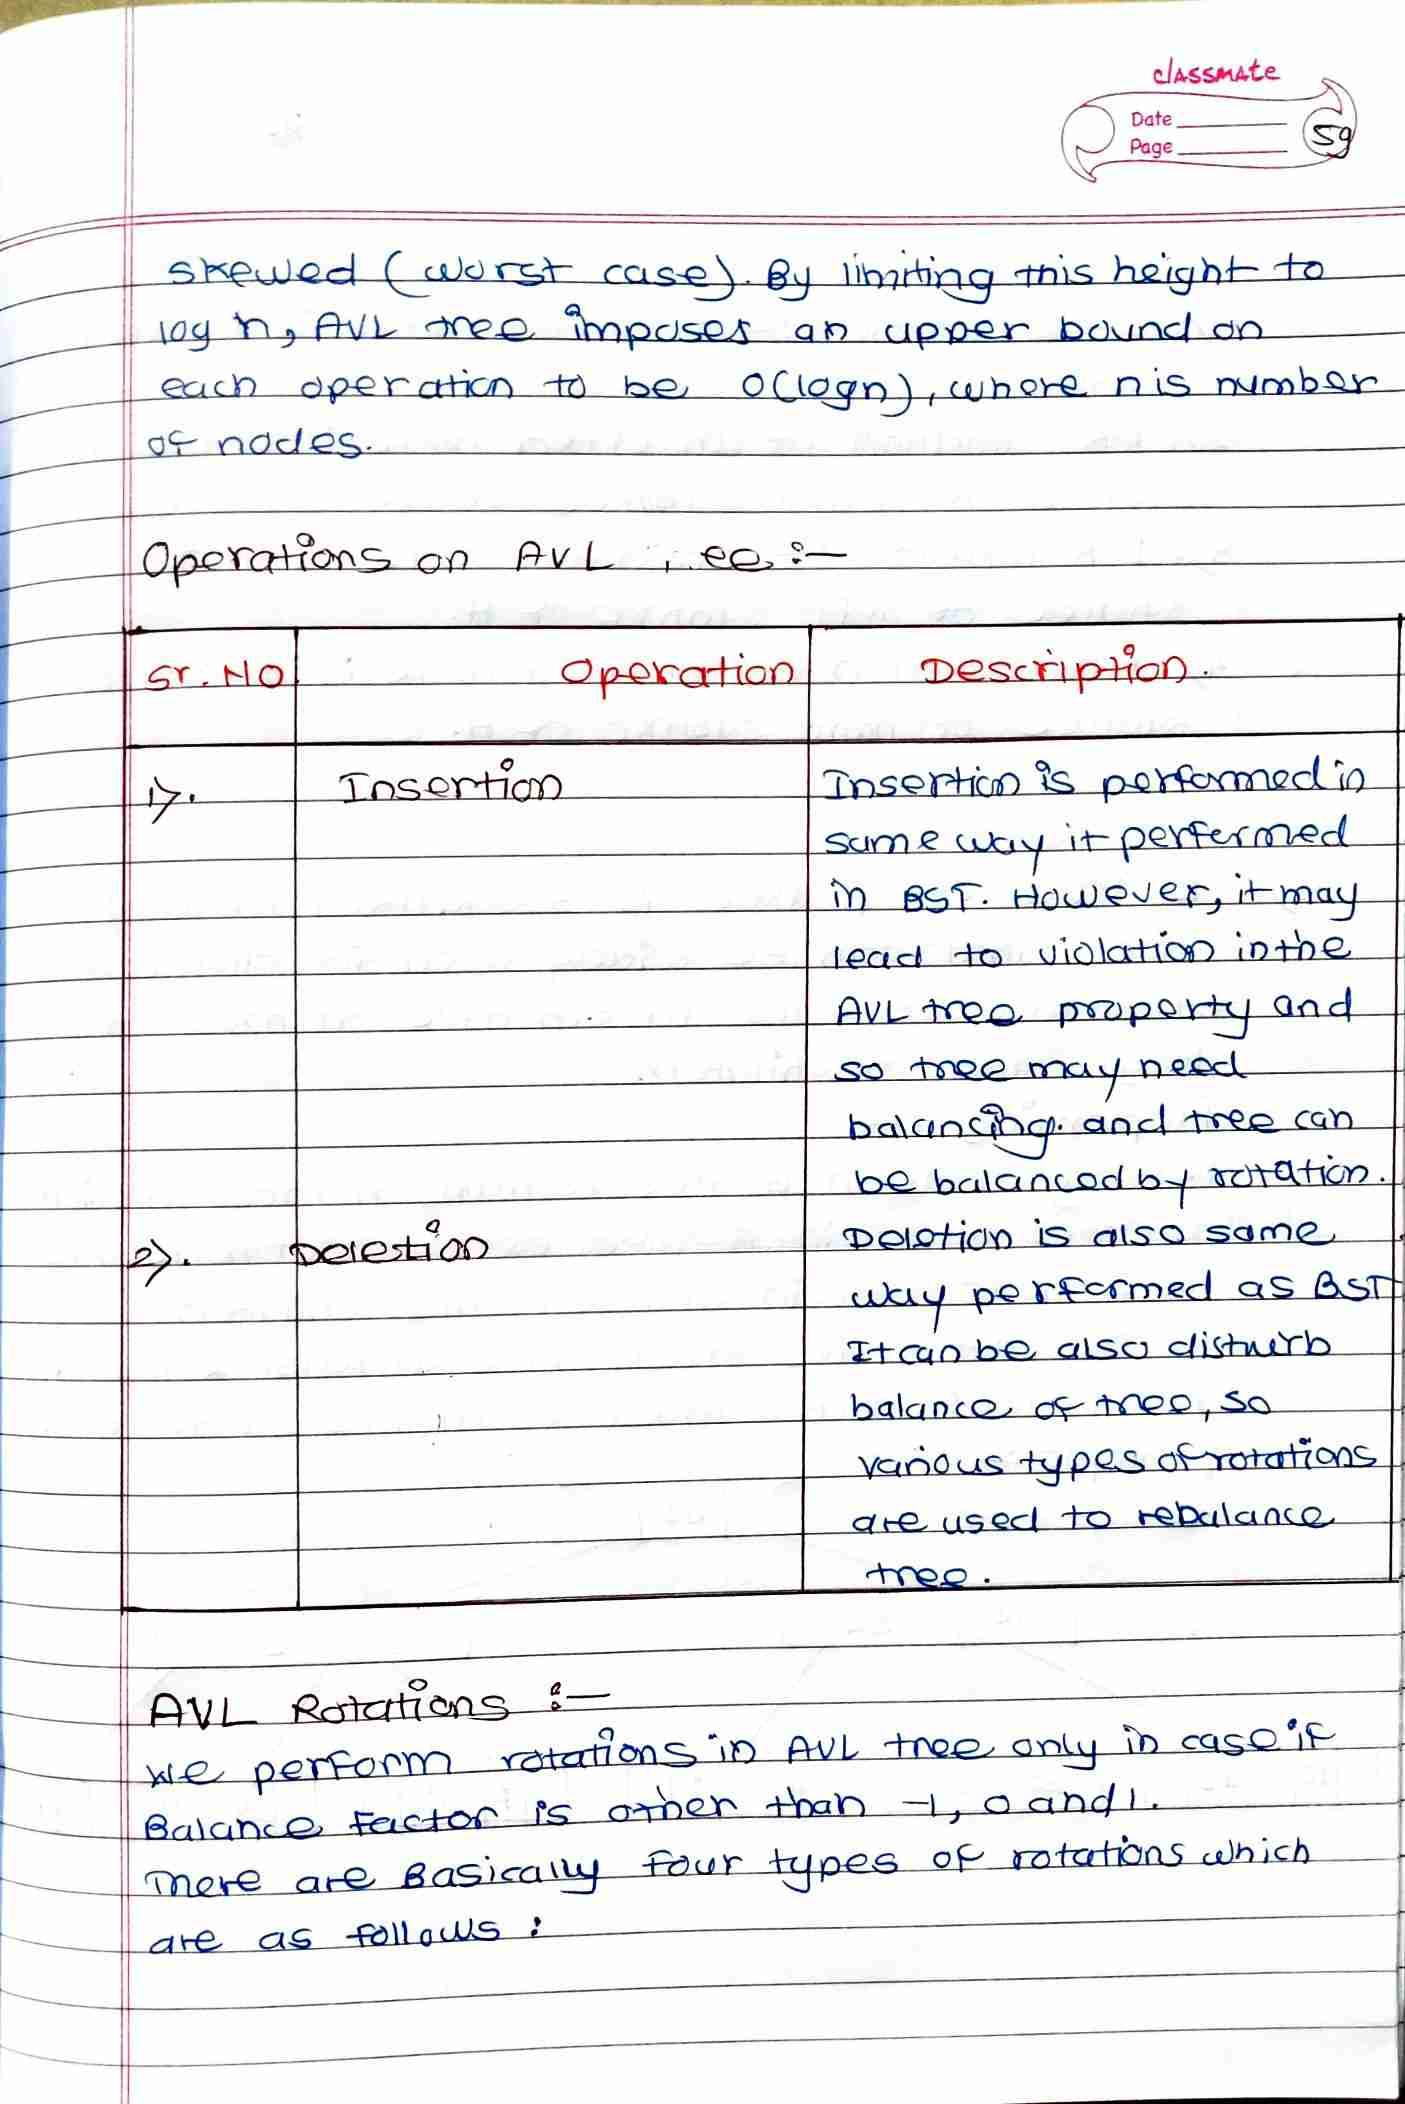 classmate
Date
Page
59
skewed (worst case). By limiting this height to
log n, AVL tree imposes an upper bound on
each operation to be O(logn), where n is number
of nodes.
Operations on AVL ee :-
Sr. No Operation Description.
1). Insertion Insertion is performed in
same way it performed
in BST. However, it may
lead to violation in the
AVL tree property and
so tree may need
balancing. and tree can
be balanced by rotation.
2). Deletion Deletion is also same
way performed as BST
It can be also disturb
balance of tree, so
various types of rotations
are used to rebalance
tree.
AVL Rotations :-
We perform rotations in AVL tree only in case if
Balance factor is other than -1, 0 and 1.
There are Basically four types of rotations which
are as follows :